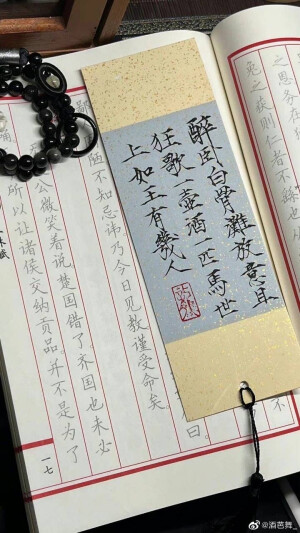 之恩务在
兔之获则仁者不繇也
醉卧白骨灘放意且
狂歌一壺酒一匹馬世
上如王有幾人
陋不知忌讳乃今日见教谨受命矣
曰。
公微笑着说楚国错了齐国也未必
所以让诸侯交纳贡品。并不是为了
一七
@酒芭舞_